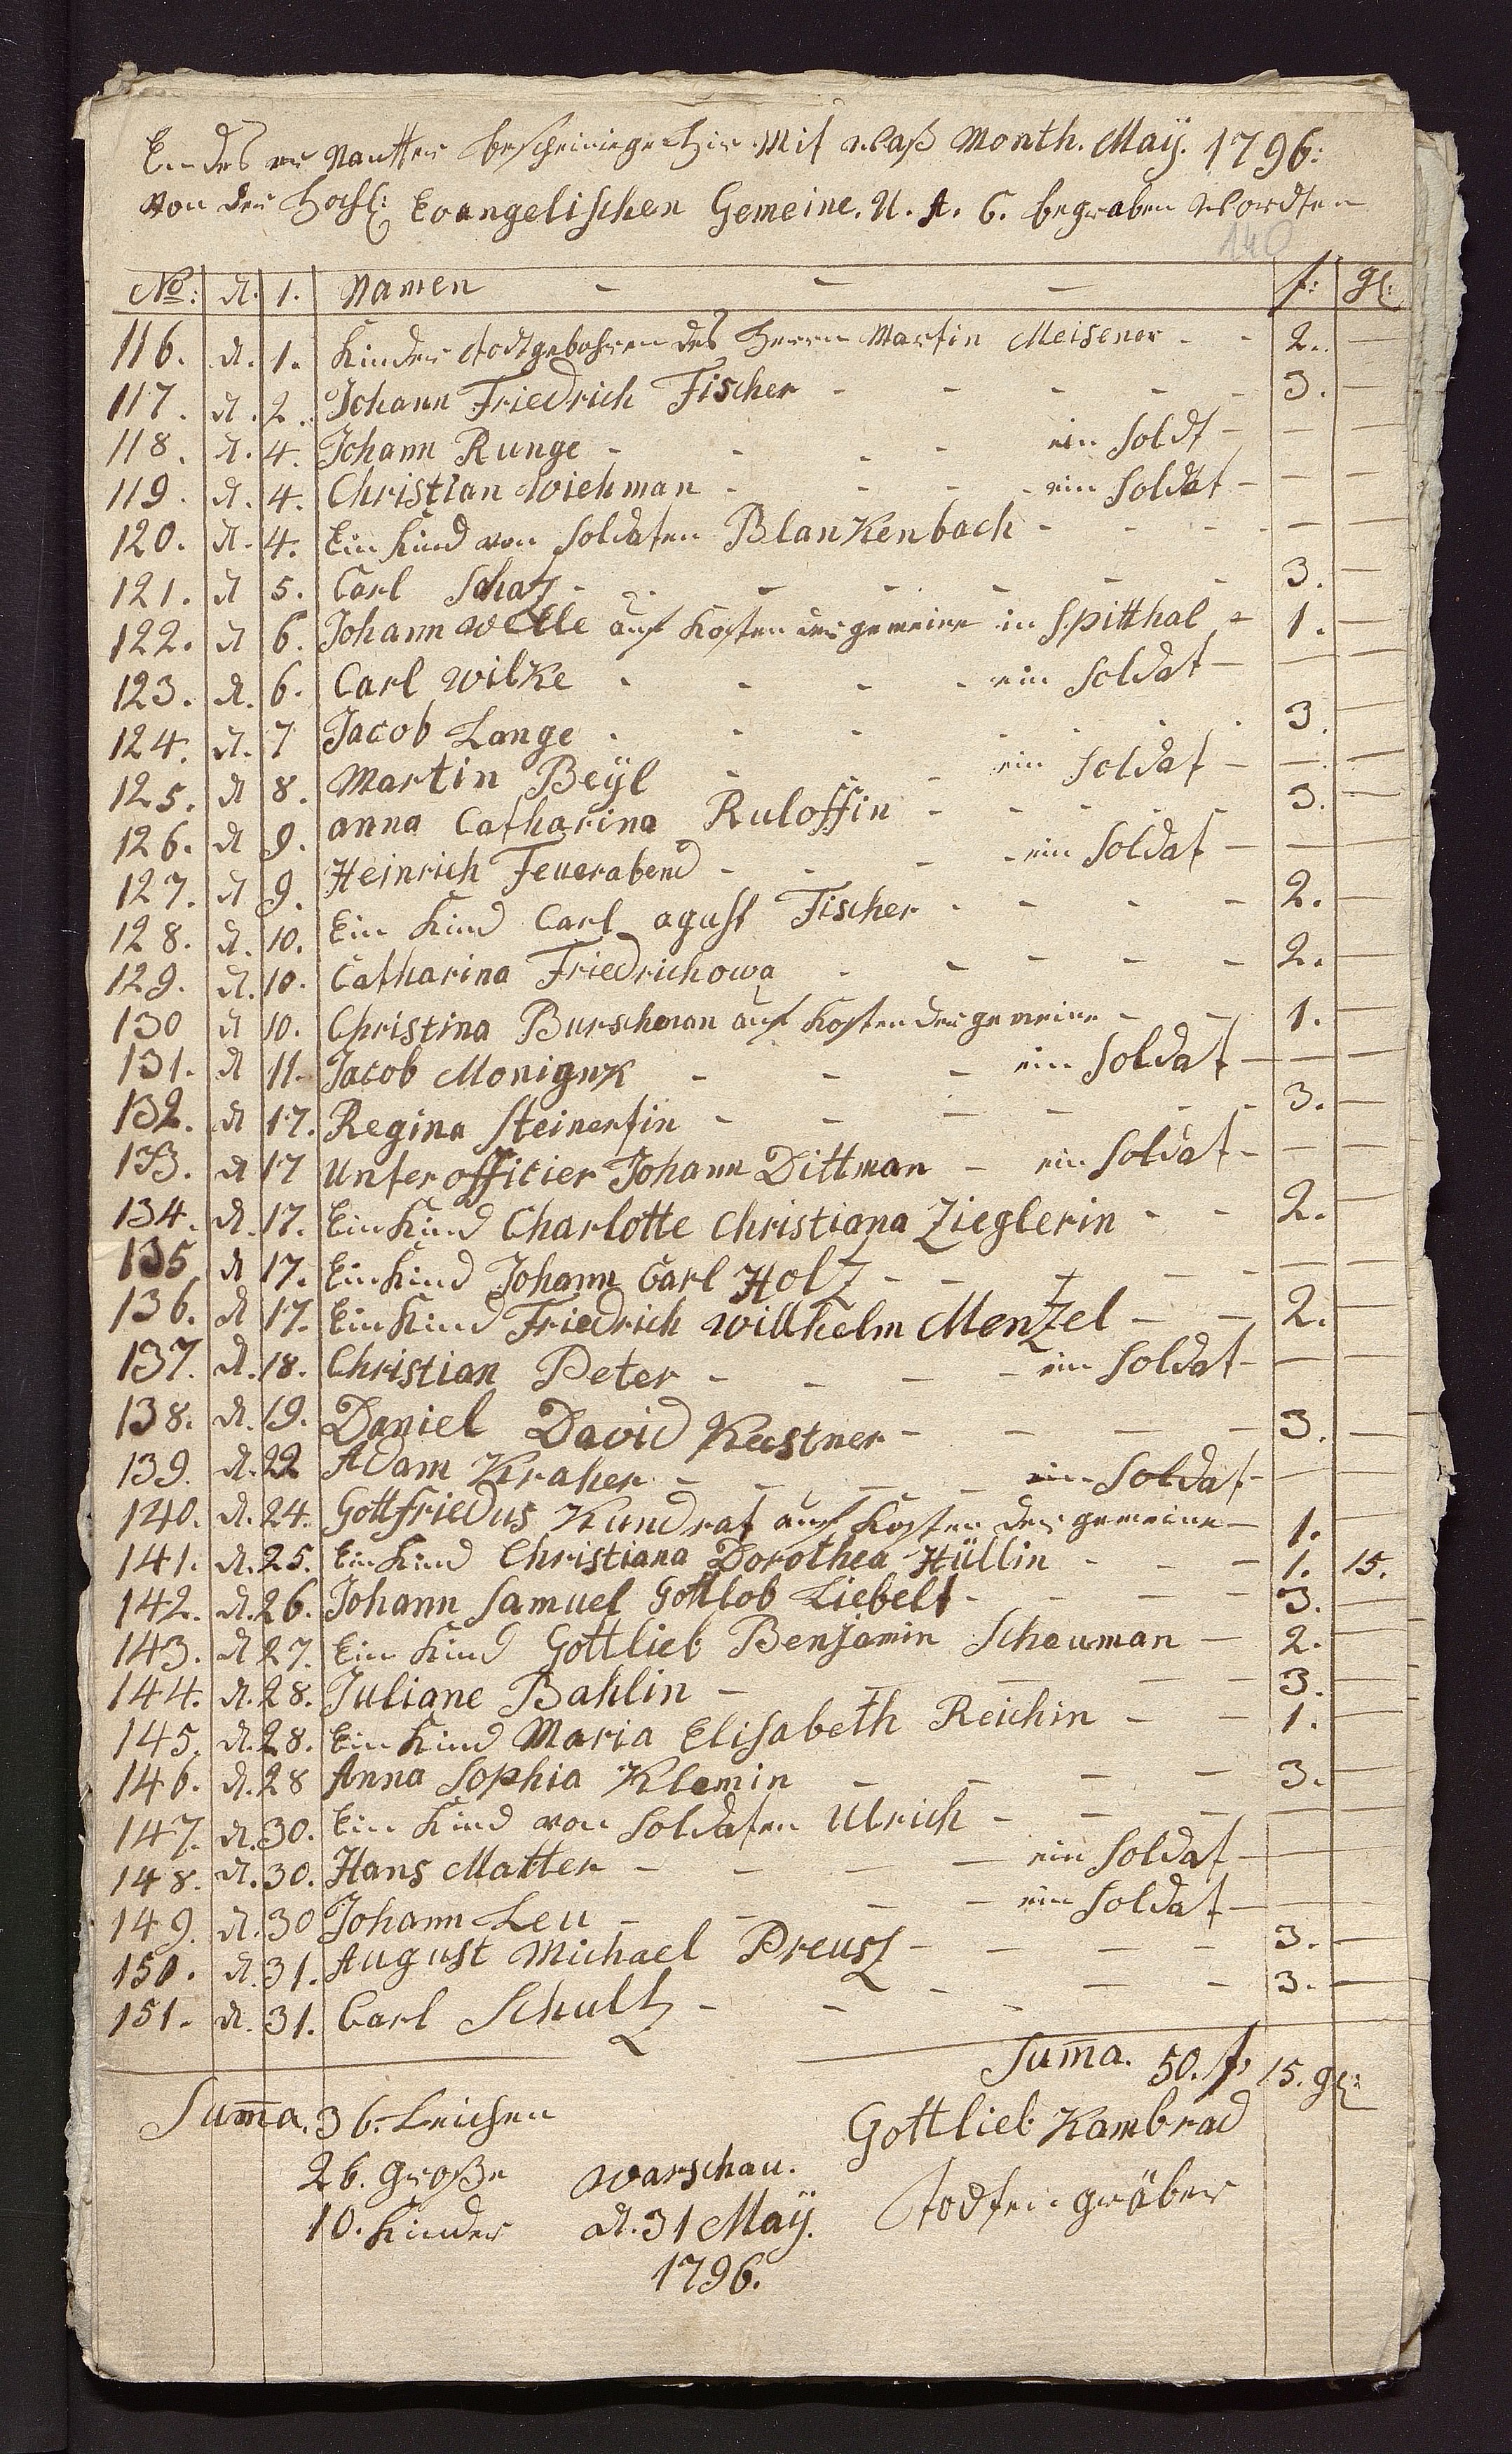 Endes er Nantter bescheinige hir Mit waß Month. Maÿ. 1796:
von der Hochl: Evangelischen Gemeine. U. A. C. begraben wordten
140
No: d. 1. Namen - - - f: gl:
116. d. 1. Kinder Todtgebohren des Herrn Martin Meisener - - 2. —
117. d. 2. Johann Friedrich Fischer - - - - - 3. —
118. d. 4. Johann Runge - - - - ein Soldt - — —
119. d. 4. Christian Wiehman - - - - ein Soldat - — —
120. d. 4. Ein Kind von Soldaten Blankenbach - - - - — —
121. d 5. Carl Schatz - - - - - - 3. —
122. d 6. Johann Welle auf Kosten der gemeine in Spitthal - 1. —
123. d. 6. Carl Wilke - - - - ein Soldat - — —
124. d. 7 Jacob Lange - - - - - - 3. —
125. d 8. Martin Beÿl - - - ein Soldat - — —
126. d 9. anna Catharina Ruloffin - - - - - 3. —
127. d 9. Heinrich Feuerabend - - - - ein Soldat - — —
128. d. 10. Ein Kind Carl agust Fischer - - - - 2. —
129. d. 10. Catharina Friedrichowa - - - - - 2. —
130 d 10. Christina Burschman auf Kosten der gemeine - - 1. —
131. d 11. Jacob Monignk - - - ein Soldat - — —
132. d 17. Regina Steinertin - - - - - - 3. —
133. d 17 Unterofficier Johann Dittman - ein Soldat - — —
134. d. 17. Ein Kind Charlotte Christiana Zieglerin - - 2. —
135 d 17. Ein Kind Johann Carl Holz - - - - - — —
136. d 17. Ein Kind Friedrich Willhelm Menzel - - 2. —
137. d. 18. Christian Peter - - - - ein Soldat - — —
138. d. 19. Daniel David Kestner - - - - 3. —
139. d. 22 Adam Kraher - - - - ein Soldat - — —
140. d. 24. Gottfriedus Kundrat auf Kosten der gemeine - 1.
141. d. 25. Ein Kind Christiana Dorothea Hüllin - - - 1. 15.
142. d. 26. Johann Samuel Gottlob Liebelt - - - - 3. —
143. d 27. Ein Kind Gottlieb Benjamin Schauman - 2. —
144. d. 28. Juliane Bahlin - - - - - 3. —
145. d. 28. Ein Kind Maria Elisabeth Reichin - - 1. —
146. d. 28 Anna Sophia Klemin - - - - 3. —
147. d. 30. Ein Kind von Soldaten Ulrich - - - — —
148. d. 30. Hans Matter - - - - ein Soldat - — —
149. d. 30 Johann Leu - - - - ein Soldat - — —
150. d. 31. August Michael Preusz - - - - 3. —
151. d. 31. Carl Schultz - - - - - - 3. —
Suma. 50. f. 15. gl:
Suma. 36. Leichen
26. Große
10. Kinder
Warschau.
d. 31 Maÿ.
1796.
Gottlieb Kambrad
Todten gräber